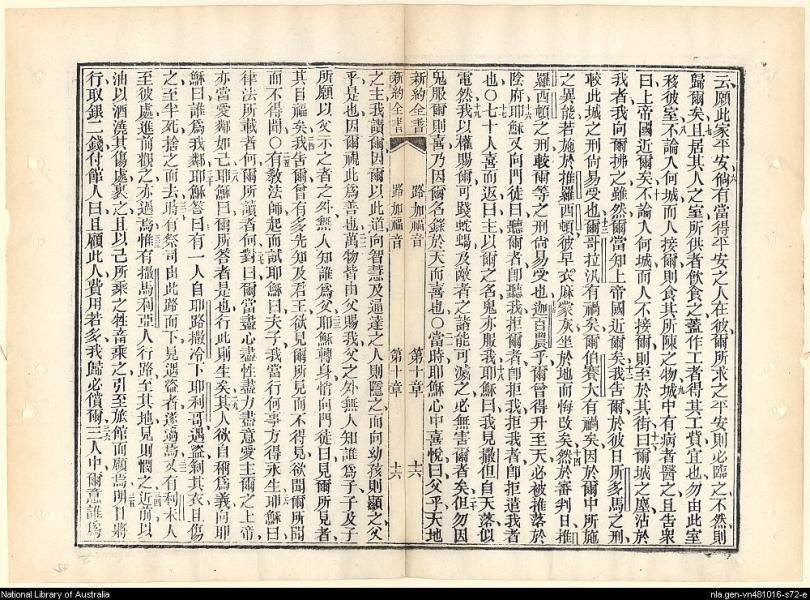 云願此家平安倘有當得平安之人在彼爾所求之平安則必臨之不然則
歸爾矣且居其人之室所供者飲食之蓋作工者得其工貲宜也勿由此室
移彼室不論入何城而人接爾則食其所陳之物城中有病者醫之且告衆
曰上帝國近爾矣不論入何城而人不接爾則至於其街曰爾城之塵沾於
我者我向爾拂之雖然爾當知上帝國近爾矣我告爾於彼日所多馬之刑
較此城之刑尚易受也爾哥拉汛有禍矣爾伯賽大有禍矣因於爾中所施
之異能若施於推羅西頓彼早衣麻蒙灰坐於地而悔改矣然於審判日推
羅西頓之刑較爾等之刑尚易受也迦百農乎爾曾得升至天必被推落於
陰府耶穌又向門徒曰聽爾者卽聽我拒爾者卽拒我拒我者卽拒遣我者
也〇七十人喜而返曰主以爾之名鬼亦服我耶穌曰我見撒但自天落似
電然我以權賜爾可踐蛇蝎及敵者之諸能可滅之必無害爾者矣但勿因
鬼服爾則喜乃因爾名錄於天而喜也〇當時耶穌心中喜悅曰父乎天地
新約全書 路加福音 第十章 十六
新約全書 路加福音 第十章 十六
之主我讚爾因爾以此道向智慧及通達之人則隱之而向幼孩則顯之父
乎是也因爾視此爲善也萬物皆由父賜我父之外無人知誰爲子子及子
所願以父示之者之外無人知誰爲父耶穌轉身悄向門徒曰見爾所見者
其目福矣我告爾曾有多先知及君王欲見爾所見而不得見欲聞爾所聞
而不得聞〇有教法師起而試耶穌曰夫子我當行何事方得永生耶穌曰
律法所載者何爾所讀者何對曰爾當盡心盡性盡力盡意愛主爾之上帝
亦當愛鄰如己耶穌曰爾所答者是也行此則生矣其人欲自稱爲義向耶
穌曰誰爲我鄰耶穌答曰有一人自耶路撒冷下耶利哥遇盜剝其衣且傷
之至半死捨之而去時有祭司由此路而下見遇盜者遂過焉又有利未人
至彼處進前觀之亦過焉惟有撒馬利亞人行路至其地見則憫之近前以
油以酒澆其傷處裹之且以己所乘之牲畜乘之引至旅館而顧焉明日將
行取銀二錢付館人曰且顧此人費用若多我歸必償爾三人中爾意誰爲
National Library of Australia
nla.gen-vn481016-s72-e